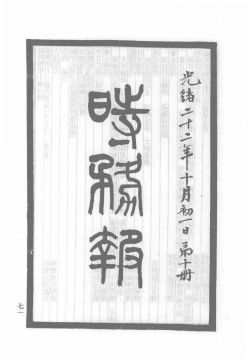 光緒二十二年十月初一日第十册
時務報
七一